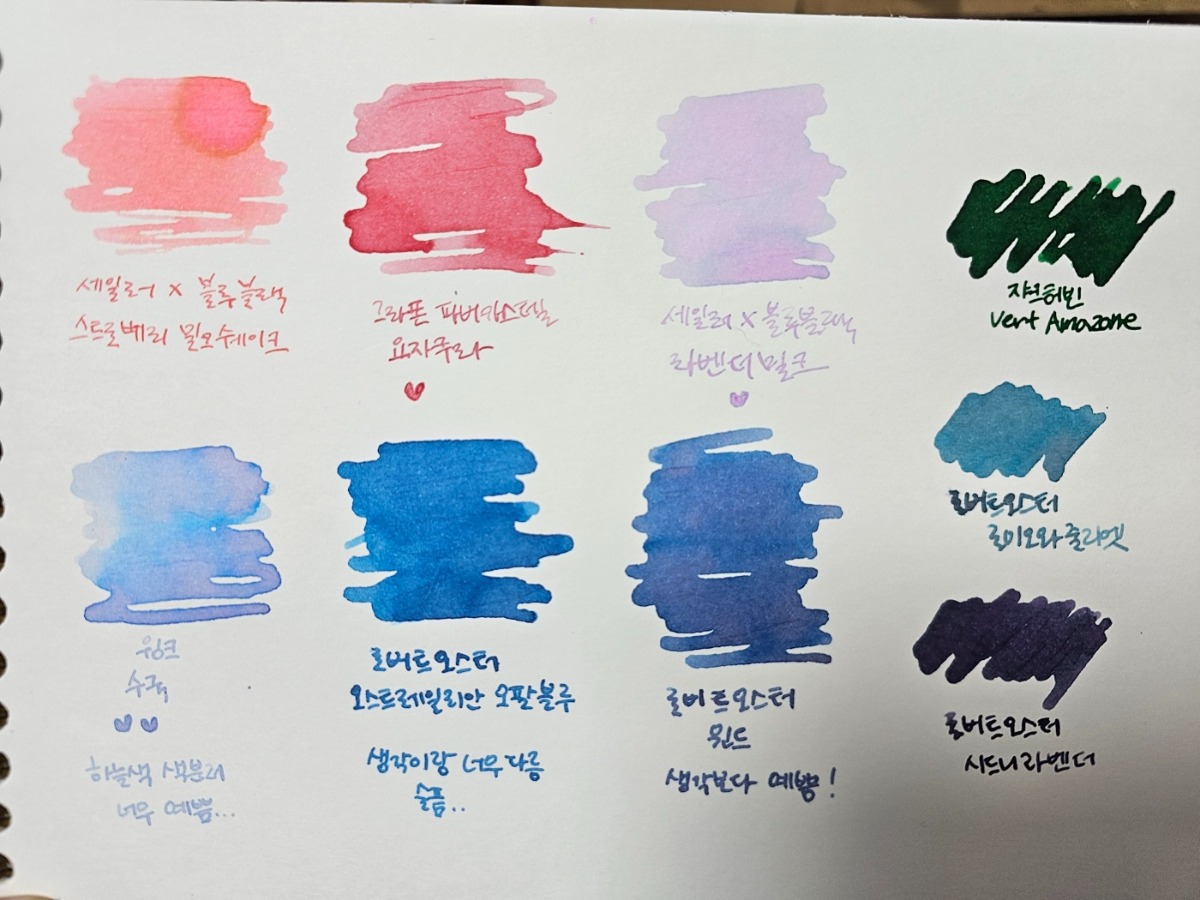 세일러 x 블루블랙
스트로베리 밀크쉐이크
그라폰 파버카스텔
요자쿠라
세일러 x 블루블랙
라벤더밀크
쟈크허빈
Vert Amazone
로버트오스터
로미오와줄리엣
로버트오스터
시드니라벤더
윙크
수국
하늘색 색분리
너무 예쁨...
로버트오스터
오스트레일리안 오팔블루
생각이랑 너무다름
슬픔..
로버트오스터
윈드
생각보다 예쁨!